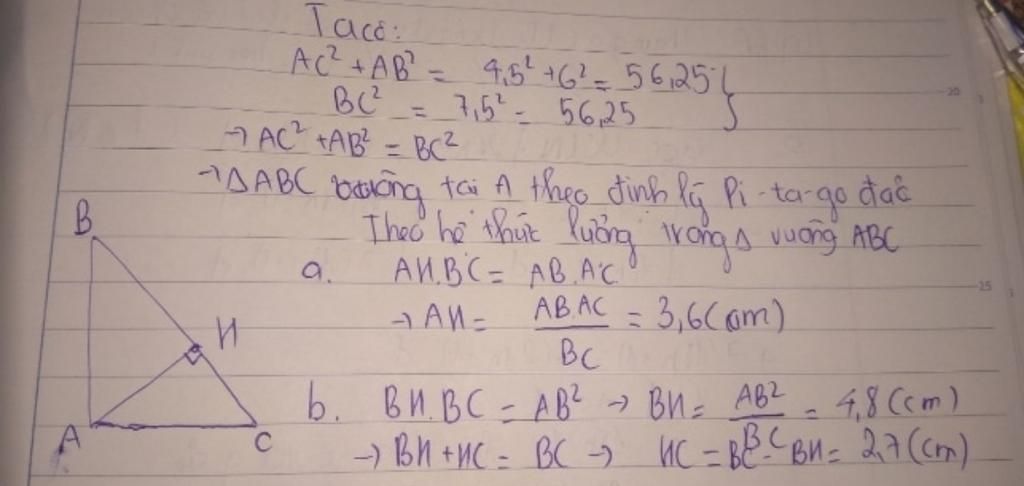 Ta có:
AC² + AB² = 4,5² + 6² = 56,25 }
BC² = 7,5² = 56,25
→ AC² + AB² = BC²
→ Δ ABC vuông tại A theo định lý Pi-ta-go đảo
Theo hệ thức lượng trong Δ vuông ABC
a. AH.BC = AB.AC
→ AH = AB.AC / BC = 3,6 (cm)
b. BH.BC = AB² → BH = AB² / BC = 4,8 (cm)
→ BH + HC = BC → HC = BC - BH = 2,7 (cm)
B
H
A
C
20
25